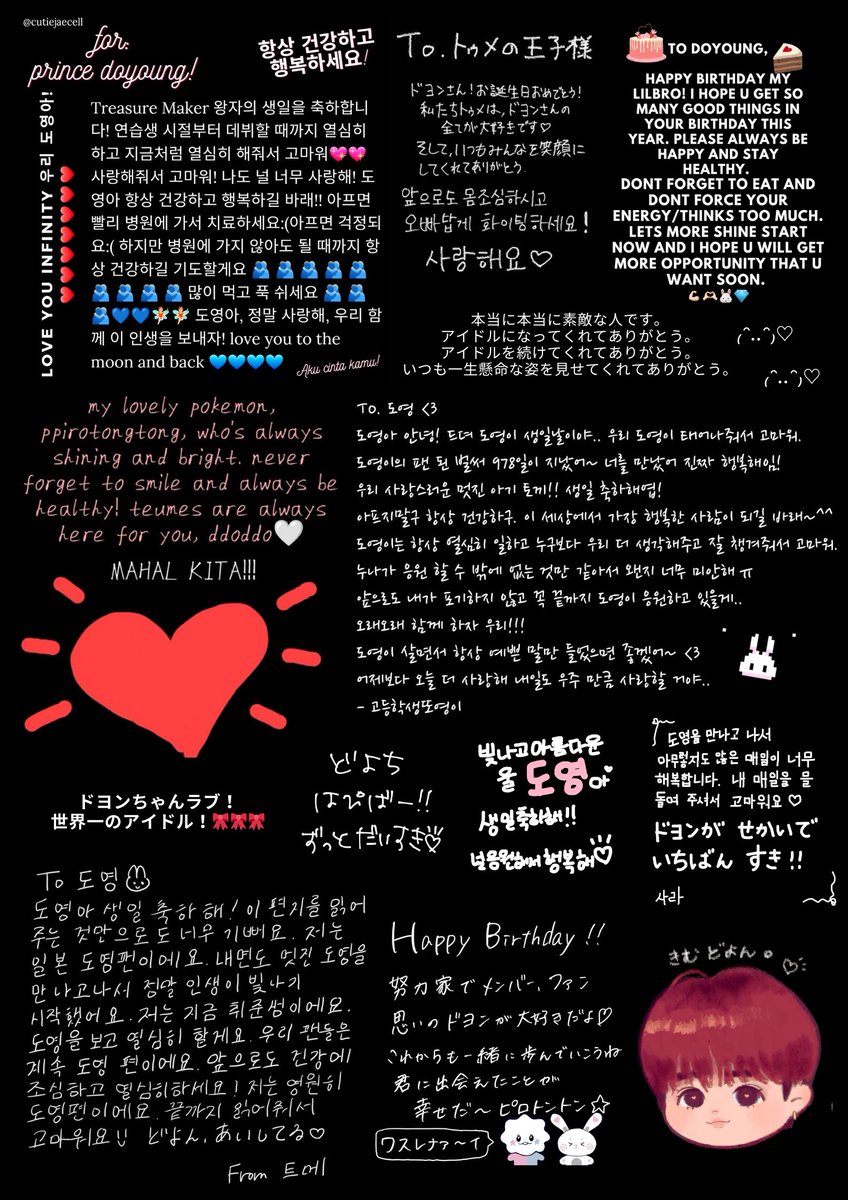 @cutiejaecell
for:
prince doyoung!
항상 건강하고
행복하세요!
LOVE YOU INFINITY 우리 도영아!
Treasure Maker 왕자의 생일을 축하합니
다! 연습생 시절부터 데뷔할 때까지 열심히
하고 지금처럼 열심히 해줘서 고마워💖💖
사랑해줘서 고마워! 나도 널 너무 사랑해! 도
영아 항상 건강하고 행복하길 바래!! 아프면
빨리 병원에 가서 치료하세요:(아프면 걱정되
요:( 하지만 병원에 가지 않아도 될 때까지 항
상 건강하길 기도할게요 🫂🫂🫂🫂🫂
🫂🫂🫂🫂 많이 먹고 푹 쉬세요 🫂🫂
🫂💙💙🧚🧚 도영아, 정말 사랑해, 우리 함
께 이 인생을 보내자! love you to the
moon and back 💙💙💙💙
Aku cinta kamu!
To. トゥメの王子様
ドヨンさん!お誕生日おめでとう!
私たちトゥメは、ドヨンさんの
全てが大好きです♡
そして、いつもみんなを笑顔に
してくれてありがとう。
앞으로도 몸조심하시고
오빠답게 화이팅하세요!
사랑해요♡
🎂TO DOYOUNG,🍰
HAPPY BIRTHDAY MY
LILBRO! I HOPE U GET SO
MANY GOOD THINGS IN
YOUR BIRTHDAY THIS
YEAR. PLEASE ALWAYS BE
HAPPY AND STAY
HEALTHY.
DONT FORGET TO EAT AND
DONT FORCE YOUR
ENERGY/THINKS TOO MUCH.
LETS MORE SHINE START
NOW AND I HOPE U WILL GET
MORE OPPORTUNITY THAT U
WANT SOON.
💪🏼🫶🏼🐰💎
本当に本当に素敵な人です。
アイドルになってくれてありがとう。
アイドルを続けてくれてありがとう。
いつも一生懸命な姿を見せてくれてありがとう。
(ˆ･･ˆ)♡
(ˆ･･ˆ)♡
my lovely pokemon,
ppirotongtong, who's always
shining and bright. never
forget to smile and always be
healthy! teumes are always
here for you, ddoddo🤍
MAHAL KITA!!!
To. 도영 <3
도영아 안녕! 드뎌 도영이 생일날이야.. 우리 도영이 태어나줘서 고마워.
도영이의 팬 된 벌써 978일이 지났어~ 너를 만났어 진짜 행복해임!!
우리 사랑스러운 멋진 아기 토끼!! 생일 축하해엽!
아프지말구 항상 건강하구. 이 세상에서 가장 행복한 사람이 되길 바래~^^
도영이는 항상 열심히 일하고 누구보다 우리 더 생각해주고 잘 챙겨줘서 고마워.
누나가 응원 할 수 밖에 없는 것만 같아서 왠지 너무 미안해 ㅠ
앞으로도 내가 포기하지 않고 꼭 끝까지 도영이 응원하고 있을게..
오래오래 함께 하자 우리!!!
도영이 살면서 항상 예쁜 말만 들었으면 좋겠어~ <3
어제보다 오늘 더 사랑해 내일도 우주 만큼 사랑할 거야..
- 고등학생또영이
ドヨンちゃんラブ!
世界一のアイドル!🎀🎀🎀
どよち
はぴばー!!
ずっとだいすき♡
빛나고아름다운
울 도영아
생일축하해!!
널응원해서행복해♡
도영을 만나고 나서
아무렇지도 않은 매일이 너무
해복합니다. 내 매일을 물
들여 주셔서 고마워요♡
ドヨンが せかいで
いちばん すき!!
사라
To 도영
도영아 생일 축하해! 이 편지를 읽어
주는 것만으로도 너무 기뻐요. 저는
일본 도영팬이에요. 내면도 멋진 도영을
만나고나서 정말 인생이 빛나기
시작했어요. 저는 지금 취준생이에요.
도영을 보고 열심히 할게요. 우리 팬들은
계속 도영 편이에요. 앞으로도 건강에
조심하고 열심히하세요! 저는 영원히
도영팬이에요. 끝까지 읽어줘서
고마워요!! どよん、あいしてる♡
From 트메
Happy Birthday!!
努力家でメンバー、ファン
思いのドヨンが大好きだよ♡
これからも一緒に歩んでいこうね
君に出会えたことが
幸せだ〜ピロトントン☆
ワスレナァ〜イ
きむ どよん。